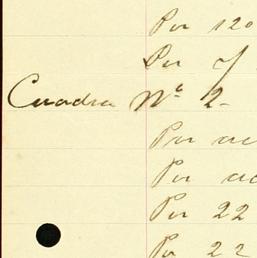 Por 120
Por
Cuadra Nº 2-
Por
Por
Por 22
Por 22